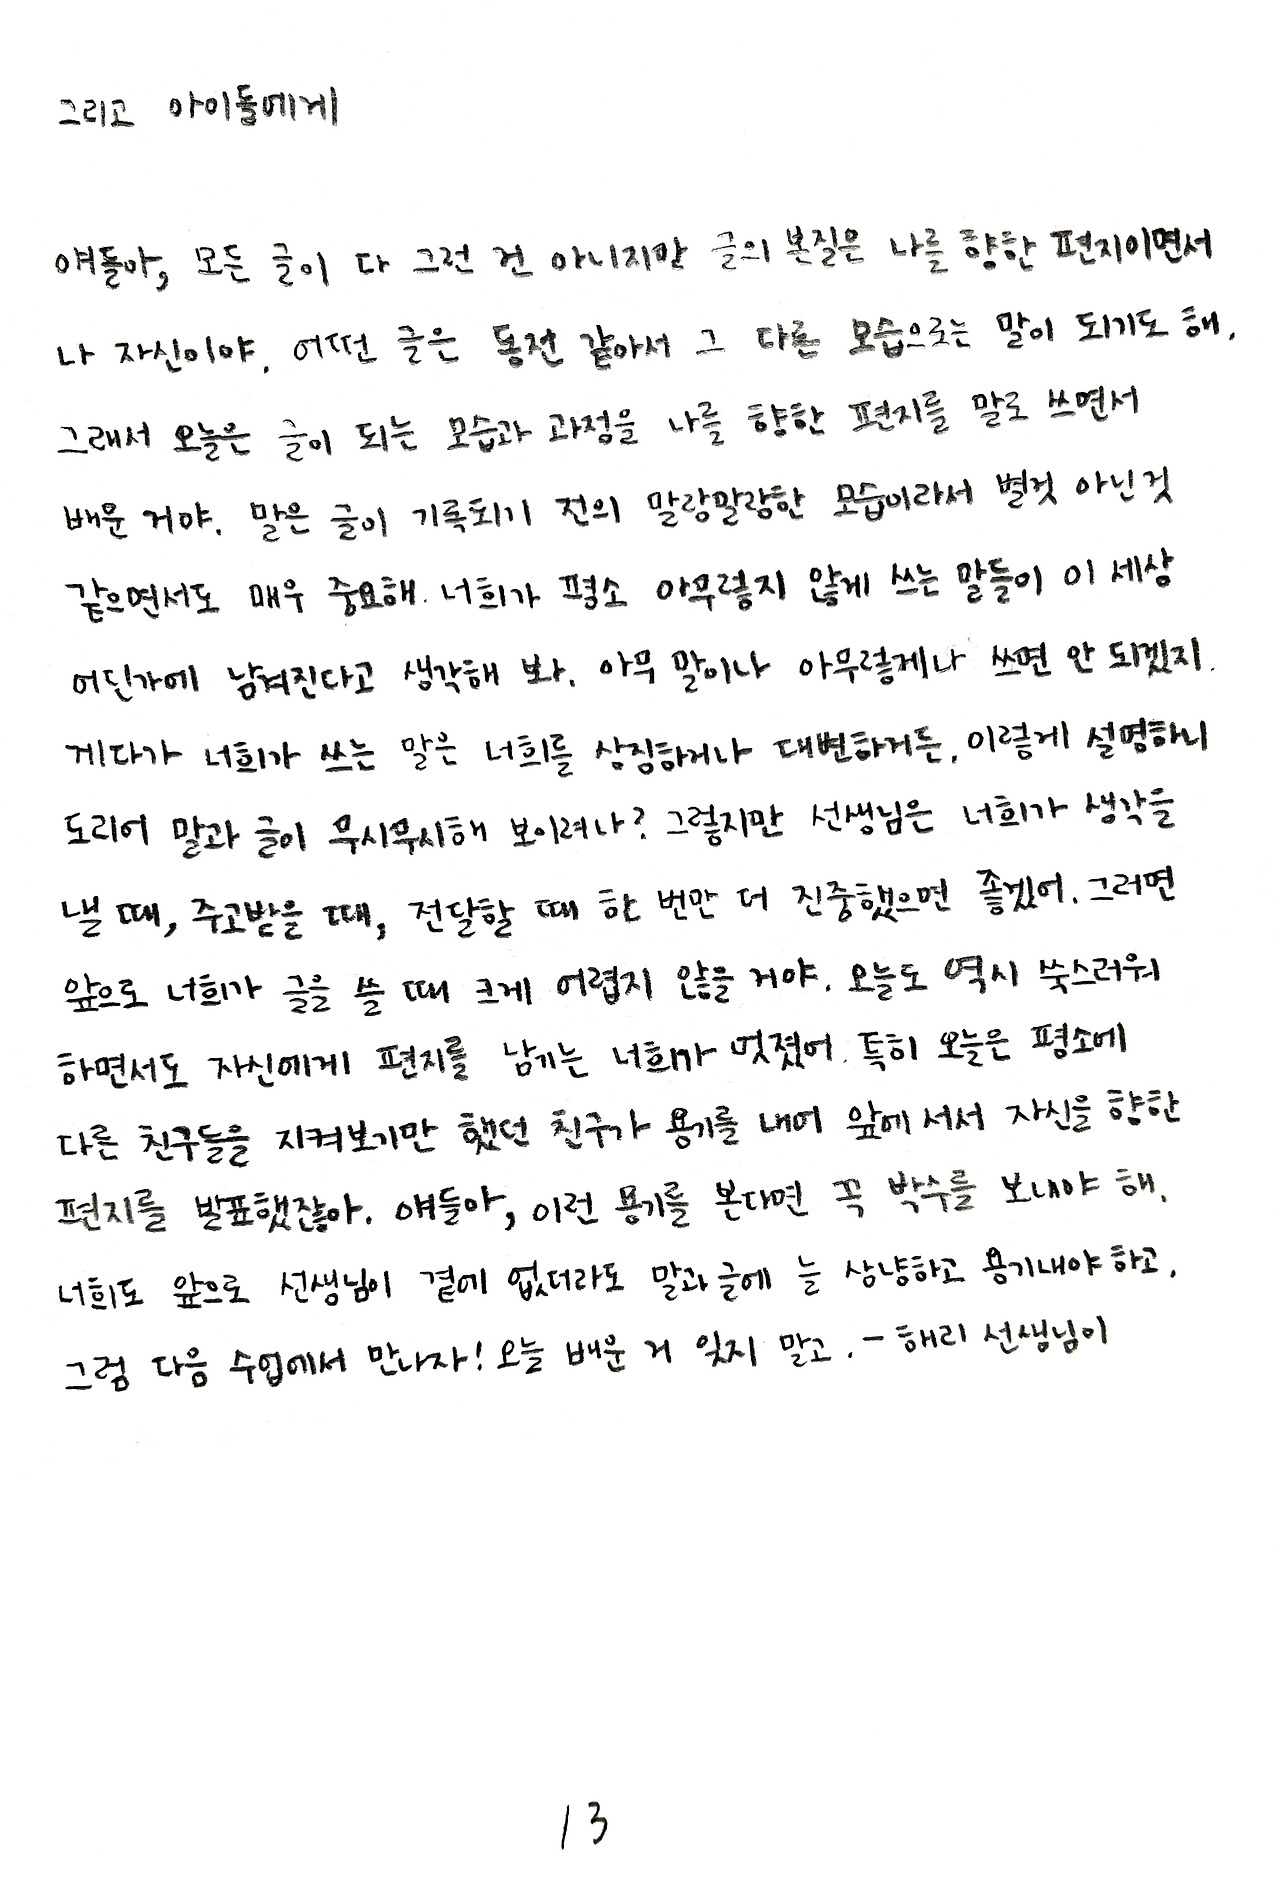 그리고 아이들에게
얘들아, 모든 글이 다 그런 건 아니지만 글의 본질은 나를 향한 편지이면서
나 자신이야. 어떤 글은 동전 같아서 그 다른 모습으로는 말이 되기도 해.
그래서 오늘은 글이 되는 모습과 과정을 나를 향한 편지를 말로 쓰면서
배운 거야. 말은 글이 기록되기 전의 말랑말랑한 모습이라서 별것 아닌 것
같으면서도 매우 중요해. 너희가 평소 아무렇지 않게 쓰는 말들이 이 세상
어딘가에 남겨진다고 생각해 봐. 아무 말이나 아무렇게나 쓰면 안 되겠지.
게다가 너희가 쓰는 말은 너희를 상징하거나 대변하거든. 이렇게 설명하니
도리어 말과 글이 무시무시해 보이려나? 그렇지만 선생님은 너희가 생각을
낼 때, 주고받을 때, 전달할 때 한 번만 더 진중했으면 좋겠어. 그러면
앞으로 너희가 글을 쓸 때 크게 어렵지 않을 거야. 오늘도 역시 쑥스러워
하면서도 자신에게 편지를 남기는 너희가 멋졌어. 특히 오늘은 평소에
다른 친구들을 지켜보기만 했던 친구가 용기를 내어 앞에 서서 자신을 향한
편지를 발표했잖아. 얘들아, 이런 용기를 본다면 꼭 박수를 보내야 해.
너희도 앞으로 선생님이 곁에 없더라도 말과 글에 늘 상냥하고 용기내야 하고.
그럼 다음 수업에서 만나자! 오늘 배운 거 잊지 말고. - 해리 선생님이
13